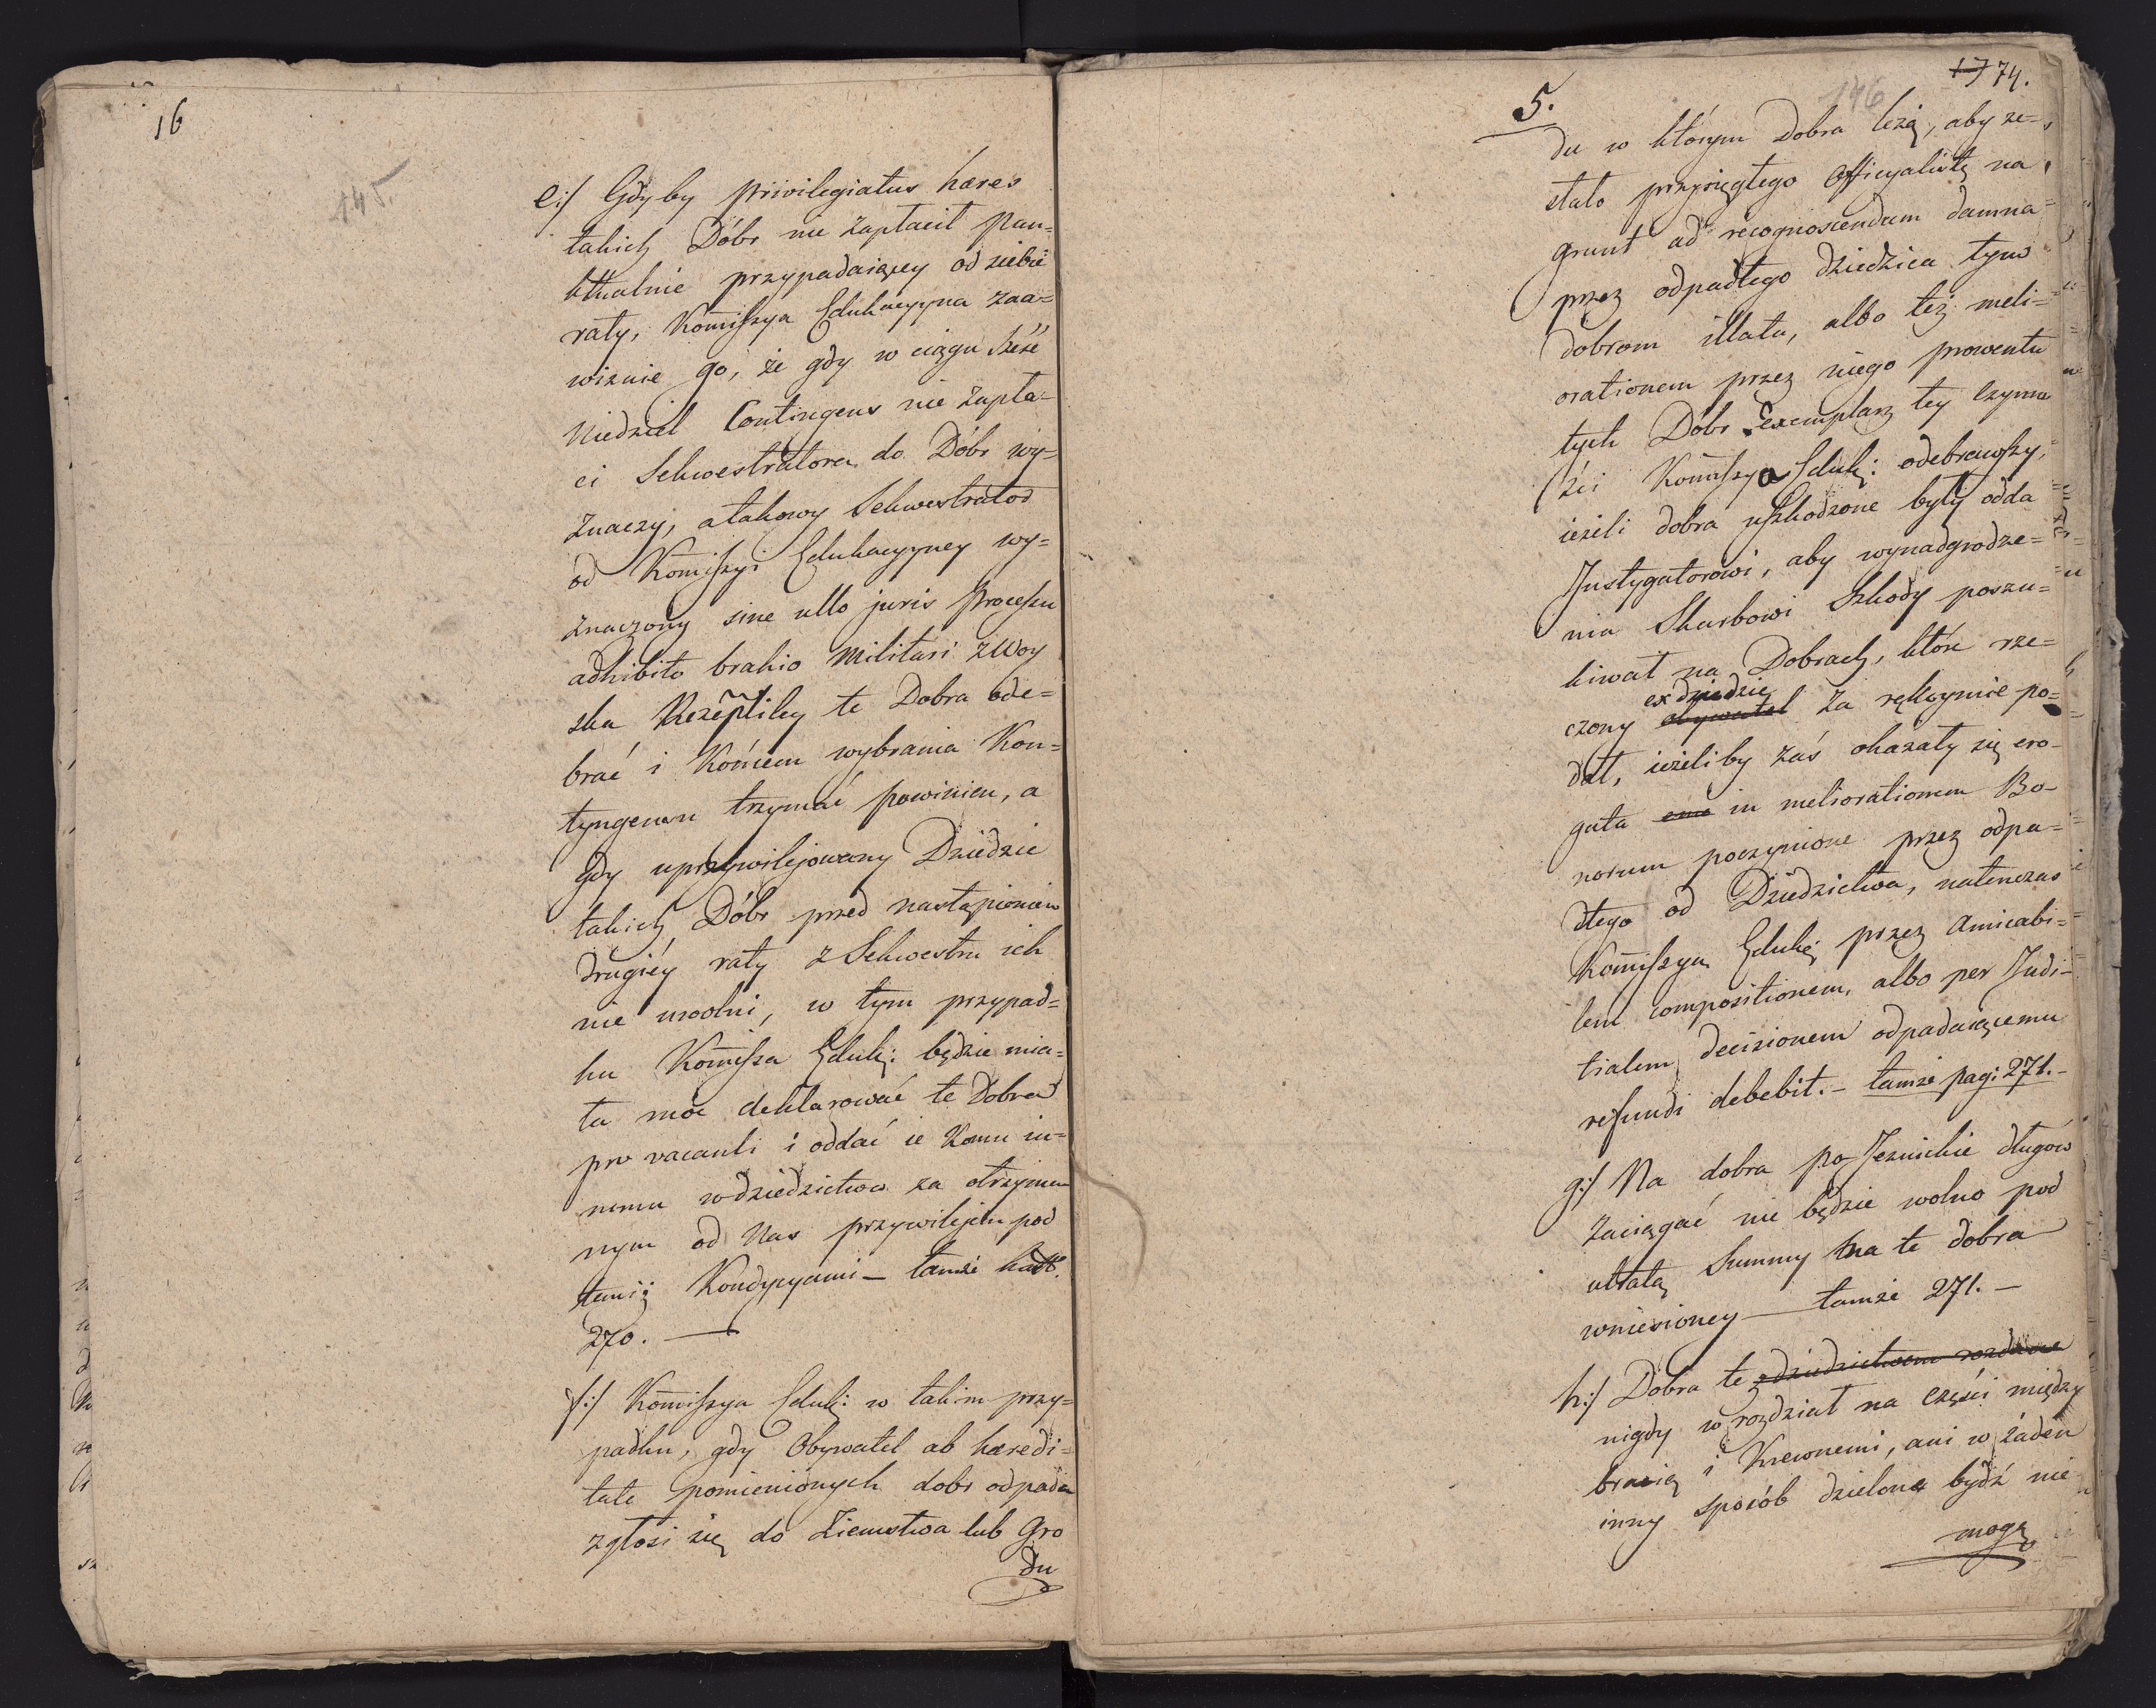 16
145.
e:/ Gdyby privilegiatus hæres
takich Dóbr nie zapłacił pun=
ktualnie przypadaiącey od siebie
raty, Kom̄issya Edukacyyna zaa=
wizuie go, że gdy w ciągu sześć
Niedziel Contingens nie zapła=
ci Sekwestratora do Dóbr wy=
znaczy, a takowy Sekwestrator
od Kom̄issyi Edukacyyney wy=
znaczony sine ullo juris Processu
adhibito brahio Militari z Woy
ska Rezeptiley te Dobra ode=
brać i Końcem wybrania Kon=
tyngensu trzymać powinien, a
gdy uprzywilejowany Dziedzic
takich Dóbr przed nastąpieniem
drugiéy raty z Sekwestru ich
nie uwolni, w tym przypad=
ku Kom̄issa Eduk: będzie mia=
ła moc deklarować te Dobra
pro vacanti i oddać ie Komu in=
nemu w dziedzictwo za otrzyma
nym od Nas przywilejem pod
temiż Kondycyami — tamże kart.
270. —
f:/ Kom̄issya Eduk: w takim przy=
padku, gdy Obywatel ab hæredi=
tate pomienionych dobr odpada
zgłosi się do Ziemstwa lub Gro
du
5.
146
17 74.
du w którym Dobra leżą, aby ze=
słało przysięgłego Officyalistę na
grunt ad recognoscendum damna
przez odpadłego dziedzica tym
dobrom illata, albo też meli=
orationem przez niego prowentu
tych Dóbr. Exemplarz tey Czynno
ści Kom̄issya Eduk: odebrawszy,
ieżeli dobra uszkodzone były odda
Instygatorowi, aby wynadgrodze=
nia Skarbowi Szkody poszu=
kiwał na Dobrach, które rze=
ex dziedzic
czony obywatel za rękoymie po=
dał, ieżeliby zaś okazały się ero-
gata eme in meliorationem Bo-
norum poczynione przez odpa=
dłego od Dziedzictwa, natenczas
Kom̄issya Eduk: przez amicabi=
lem compositionem, albo per Judi-
tialem decisionem odpadaiącemu
refundi debebit. — tamże pag: 271. —
g:/ Na dobra po-Jezuickie długów
zaciągać nie będzie wolno pod
utratą Summy na te dobra
wniesioney — tamże 271. —
h:/ Dobra te z dziedzictwem rozdane
nigdy w rozdział na części między
bracią i Krewnemi, ani w żaden
inny sposób dzielone bydź nie
mogą